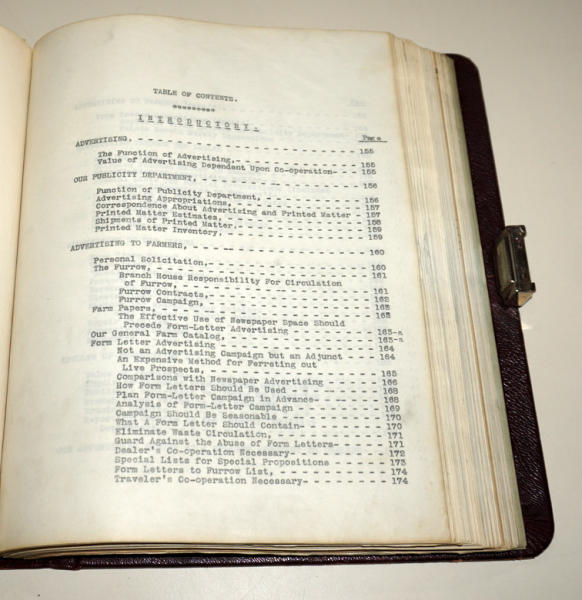 TABLE OF CONTENTS.
*********
INTRODUCTORY.
Page
ADVERTISING, - - - - - - - - - - - - - - - - - - - - - - 155
The Function of Advertising,- - - - - - - - - - - - - - 155
Value of Advertising Dependent Upon Co-operation- - - 155
OUR PUBLICITY DEPARTMENT, - - - - - - - - - - - - - - - - 156
Function of Publicity Department, - - - - - - - - - - - 156
Advertising Appropriations, - - - - - - - - - - - - - - 157
Correspondence About Advertising and Printed Matter - 157
Printed Matter Estimates, - - - - - - - - - - - - - - - 158
Shipments of Printed Matter.- - - - - - - - - - - - - - 159
Printed Matter Inventory, - - - - - - - - - - - - - - - 159
ADVERTISING TO FARMERS, - - - - - - - - - - - - - - - - - 160
Personal Solicitation,- - - - - - - - - - - - - - - - - 160
The Furrow, - - - - - - - - - - - - - - - - - - - - - - 161
Branch House Responsibility For Circulation
of Furrow, - - - - - - - - - - - - - - - - - - - - 161
Furrow Contracts,- - - - - - - - - - - - - - - - - - 162
Furrow Campaign, - - - - - - - - - - - - - - - - - - 162
Farm Papers, - - - - - - - - - - - - - - - - - - - - - 162
The Effective Use of Newspaper Space Should
Precede Form-Letter Advertising - - - - - - - - - 163-a
Our General Farm Catalog, - - - - - - - - - - - - - - - 163-a
Form Letter Advertising - - - - - - - - - - - - - - - - 164
Not an Advertising Campaign but an Adjunct - - - - 164
An Expensive Method for Ferreting out
Live Prospects, - - - - - - - - - - - - - - - - - 165
Comparisons with Newspaper Advertising - - - - - - 166
How Form Letters Should Be Used - - - - - - - - - - 168
Plan Form-Letter Campaign in Advance- - - - - - - - 168
Analysis of Form-Letter Campaign - - - - - - - - - 169
Campaign Should Be Seasonable - - - - - - - - - - - 170
What A Form Letter Should Contain- - - - - - - - - 170
Eliminate Waste Circulation, - - - - - - - - - - - 171
Guard Against the Abuse of Form Letters- - - - - - 171
Dealer's Co-operation Necessary- - - - - - - - - - 172
Special Lists for Special Propositions - - - - - - 173
Form Letters to Furrow List, - - - - - - - - - - - 174
Traveler's Co-operation Necessary- - - - - - - - - 174